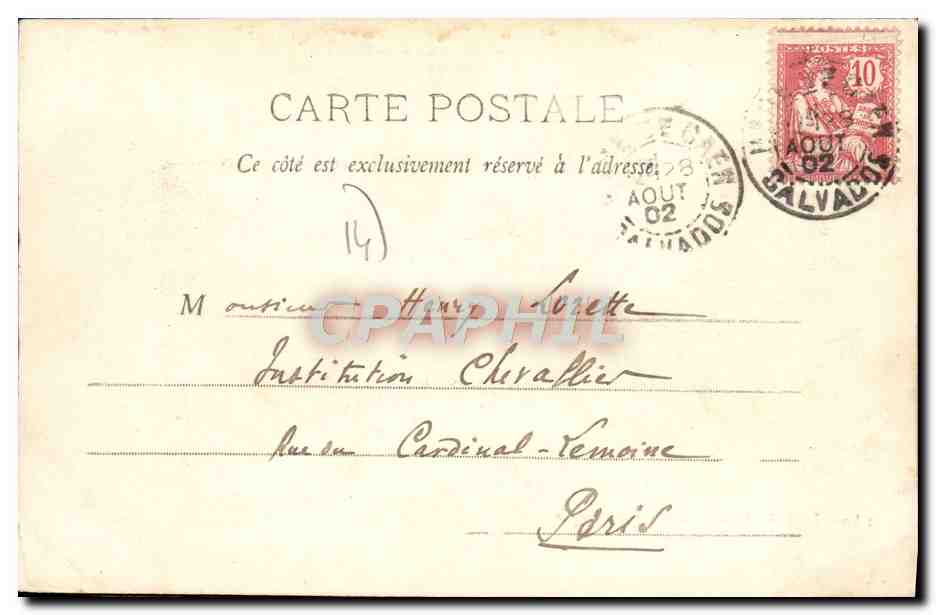 POSTES
10
CARTE POSTALE
Ce côté est exclusivement réservé à l'adresse
CAEN
28
AOUT
02
CALVADOS
AOUT
02
CALVADOS
14
Monsieur Henry Lorette
CPAPHIL
Institution Chevallier
Rue du Cardinal-Lemoine
Paris